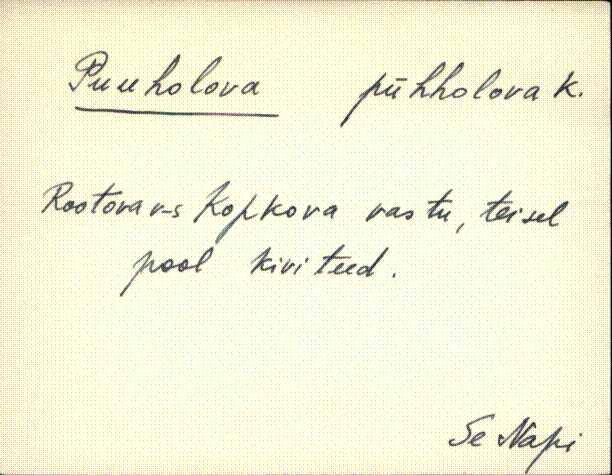 Puuholova pühholova k.
Rootova v-s Kopkova vastu, teisel
pool kiviteed.
Se Napi